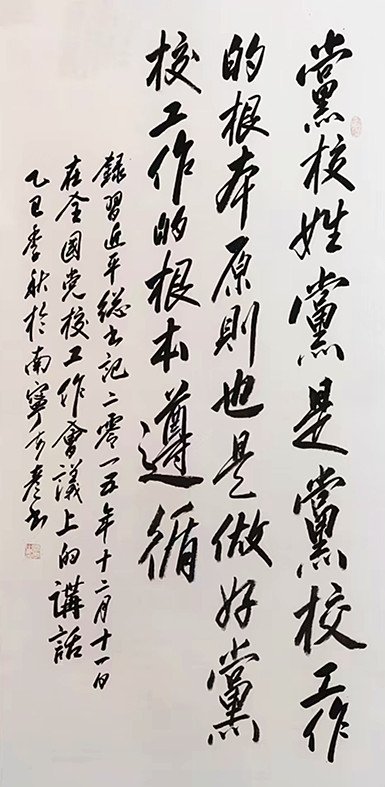 黨校姓黨是黨校工作
的根本原則也是做好黨
校工作的根本遵循
錄習近平總書记二零一五年十二月十一日
在全國党校工作會議上的講話
乙巳季秋於南寧